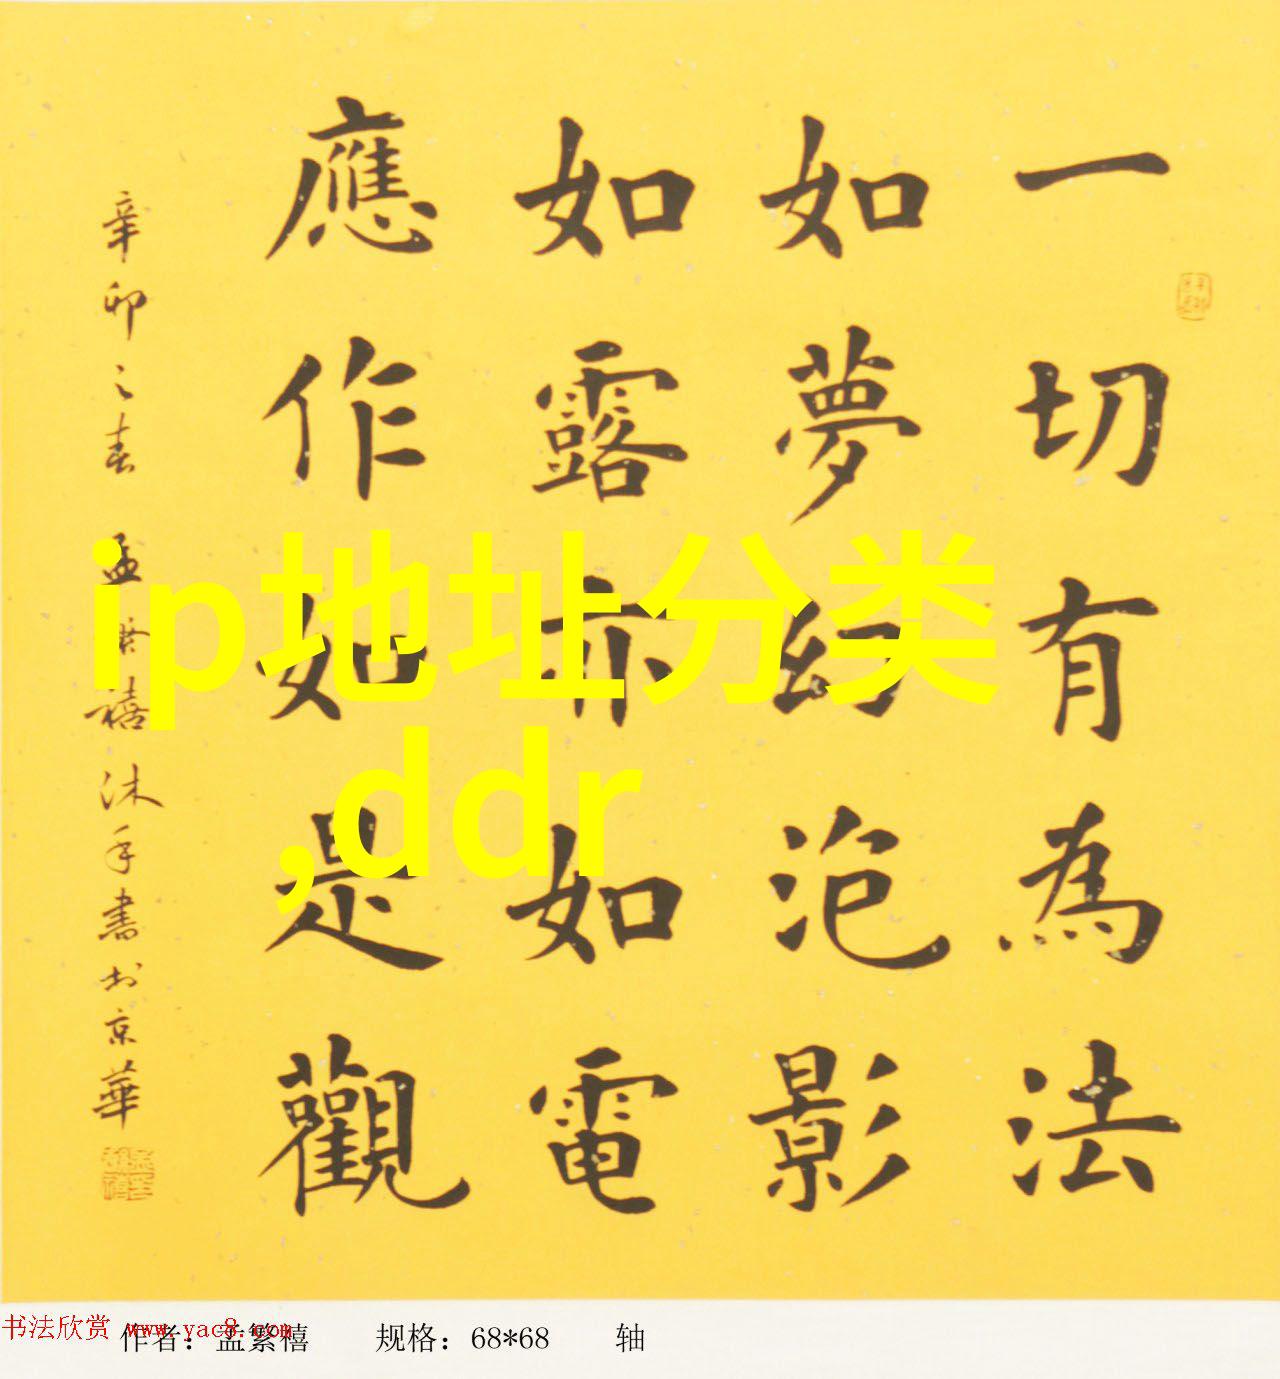 一切有為法
如夢幻泡影
如露亦如電
應作如是觀
辛卯之春 孟繁禧沐手書於京華
ip地址分类
,ddr
书法欣赏 www.yac8.com
作者：孟繁禧 规格：68*68 轴